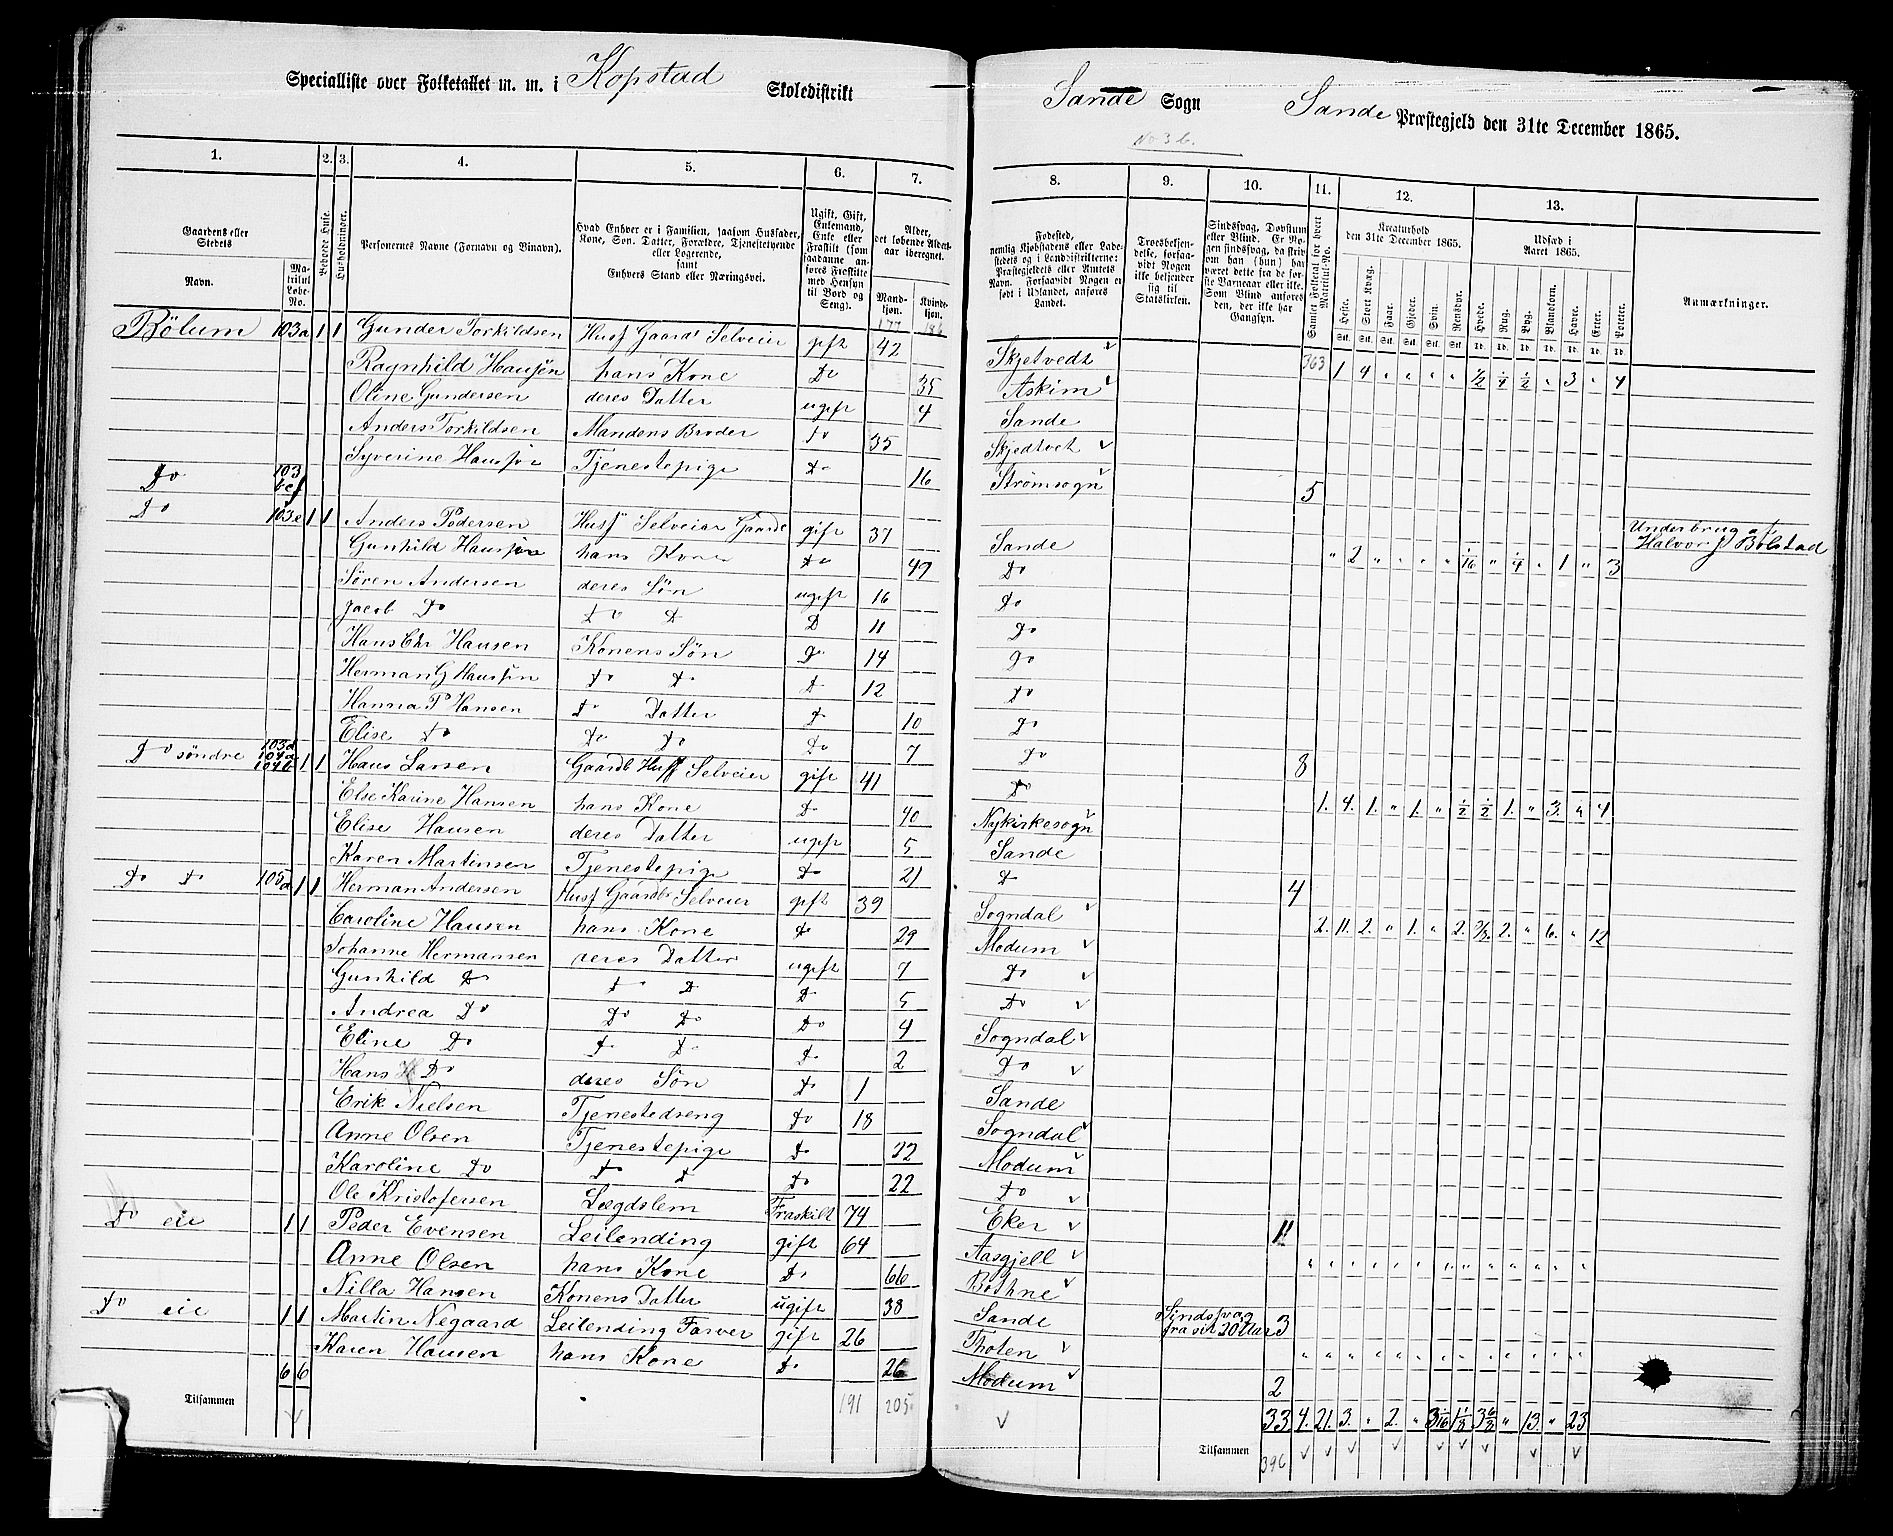 Specialliste over Folketallet m. m. i Kopstad Skoledistrikt Sande Sogn Sande Præstegjeld den 31te December 1865.
No 3 b.
1. 2. 3. 4. 5. 6. 7. 8. 9. 10. 11. 12. 13.
Gaardens eller Stedets
Navn. Matrikul Løbe-No.
Beboede Huse.
Husholdninger.
Personernes Navne (Fornavn og Vinavn).
Hvad Enhver er i Familien, saasom Husfader, Kone, Søn, Datter, Forældre, Tjenestetyende eller Logerende, samt Enhvers Stand eller Næringsvei.
Ugift, Gift, Enkemand, Enke eller Fraskilt (som saadanne anføres Fraskilte med Hensyn til Bord og Seng).
Alder, det løbende Aldersaar iberegnet.
Mandkjøn. Kvindekjøn.
Fødested, nemlig Kjøbstadens eller Ladestedets og i Landdistrikterne: Præstegjeldets eller Amtets Navn. Forsaavidt Nogen er født i Udlandet, anføres Landet.
Troesbekjendelse, forsaavidt Nogen ikke bekjender sig til Statskirken.
Sindssvag, Døvstum eller Blind. Er Nogen sindssvag, da skrives om han (hun) har været dette fra de første Barneaar eller ikke. Som Blind anføres den, der ikke har Gangsyn.
Samlet Folketal for hvert Matrikul-No.
Kreaturhold den 31te December 1865.
Heste. Stort Kvæg. Faar. Gjeder. Svin. Rensdyr.
Udsæd i Aaret 1865.
Hvede. Rug. Byg. Blandkorn. Havre. Erter. Poteter.
Anmærkninger.
177 186 363
Bølum 103a 1 1 Gunder Torkildsen Husf Gaardb Selveier gift 42 Skjetvedt 1 4 " " " " 1/2 1/4 1/2 " 3 " 4
Ragnhild Hansen hans Kone Do 35 Askim
Oline Gundersen deres Datter ugift 4 Sande
Anders Torkildsen Mandens Broder Do 35 Skjedtvet
Syverine Hansen Tjenestepige Do 16 Strømsogn 5
Do 103
Do 103e 1 1 Anders Pedersen Husf Selveier Gaardb gift 37 Sande " 2 " " " " 1/16 " 1/4 " 1 " 3 Underbrug af Halvor J Bølstad
Gunhild Hansen hans Kone Do 47 Do
Søren Andersen deres Søn ugift 16 Do
Jacob Do Do D D 11 Do
Hans Chr Hansen Konens Søn Do 14 Do
Herman G Hansen Do Do D 12 Do
Hanna P Hansen Do Datter Do 10 Do
Elise Do Do Do Do 7 Do 8
Do søndre 103d 104a 104b 1 1 Hans Larsen Gaardb Husf Selveier gift 41 Do 1. 4. 1. " 1. " 1/2 1/2 1. " 3. " 4
Else Karine Hansen hans Kone Do 40 Nykirkesogn
Elise Hansen deres Datter ugift 5 Sande
Karen Martinsen Tjenestepige Do 21 D 4
Do Do 105a 1 1 Herman Andersen Husf Gaardbr Selveier gift 39 Sogndal 2. 11. 2. " 1. " 2. 2. " 6. " 12
Caroline Hansen hans Kone Do 29 Modum
Johanne Hermansen deres Datter ugift 7 Do
Gunhild Do D D D 5 Do
Andrea Do Do Do Do 4 Sogndal
Eline Do D Do Do 2 Do
Hans H Do deres Søn Do 1 Sande
Erik Nielsen Tjenestedreng Do 18 Sogndal
Anne Olsen Tjenestepige Do 22 Modum
Karoline Do Do D Do 22 Do
Ole Kristofersen Lægdslem Fraskilt 74 Eker 11
Do eie 1 1 Peder Evensen Leilending gift 64 Aasgjell
Anne Olsen hans Kone Do 66 Bothne
Nilla Hansen Konens Datter ugift 38 Sande Sindssvag fra sit 20 Aar 3
Do eie 1 1 Martin Negaard Leilending Farver gift 26 Thoten
Karen Hansen hans Kone Do 26 Modum 2
6 6
Tilsammen 191 205 Tilsammen 33 4. 21. 3. " 2. " 3 1/16 1 1/8 3 6/8 " 13. " 23
396